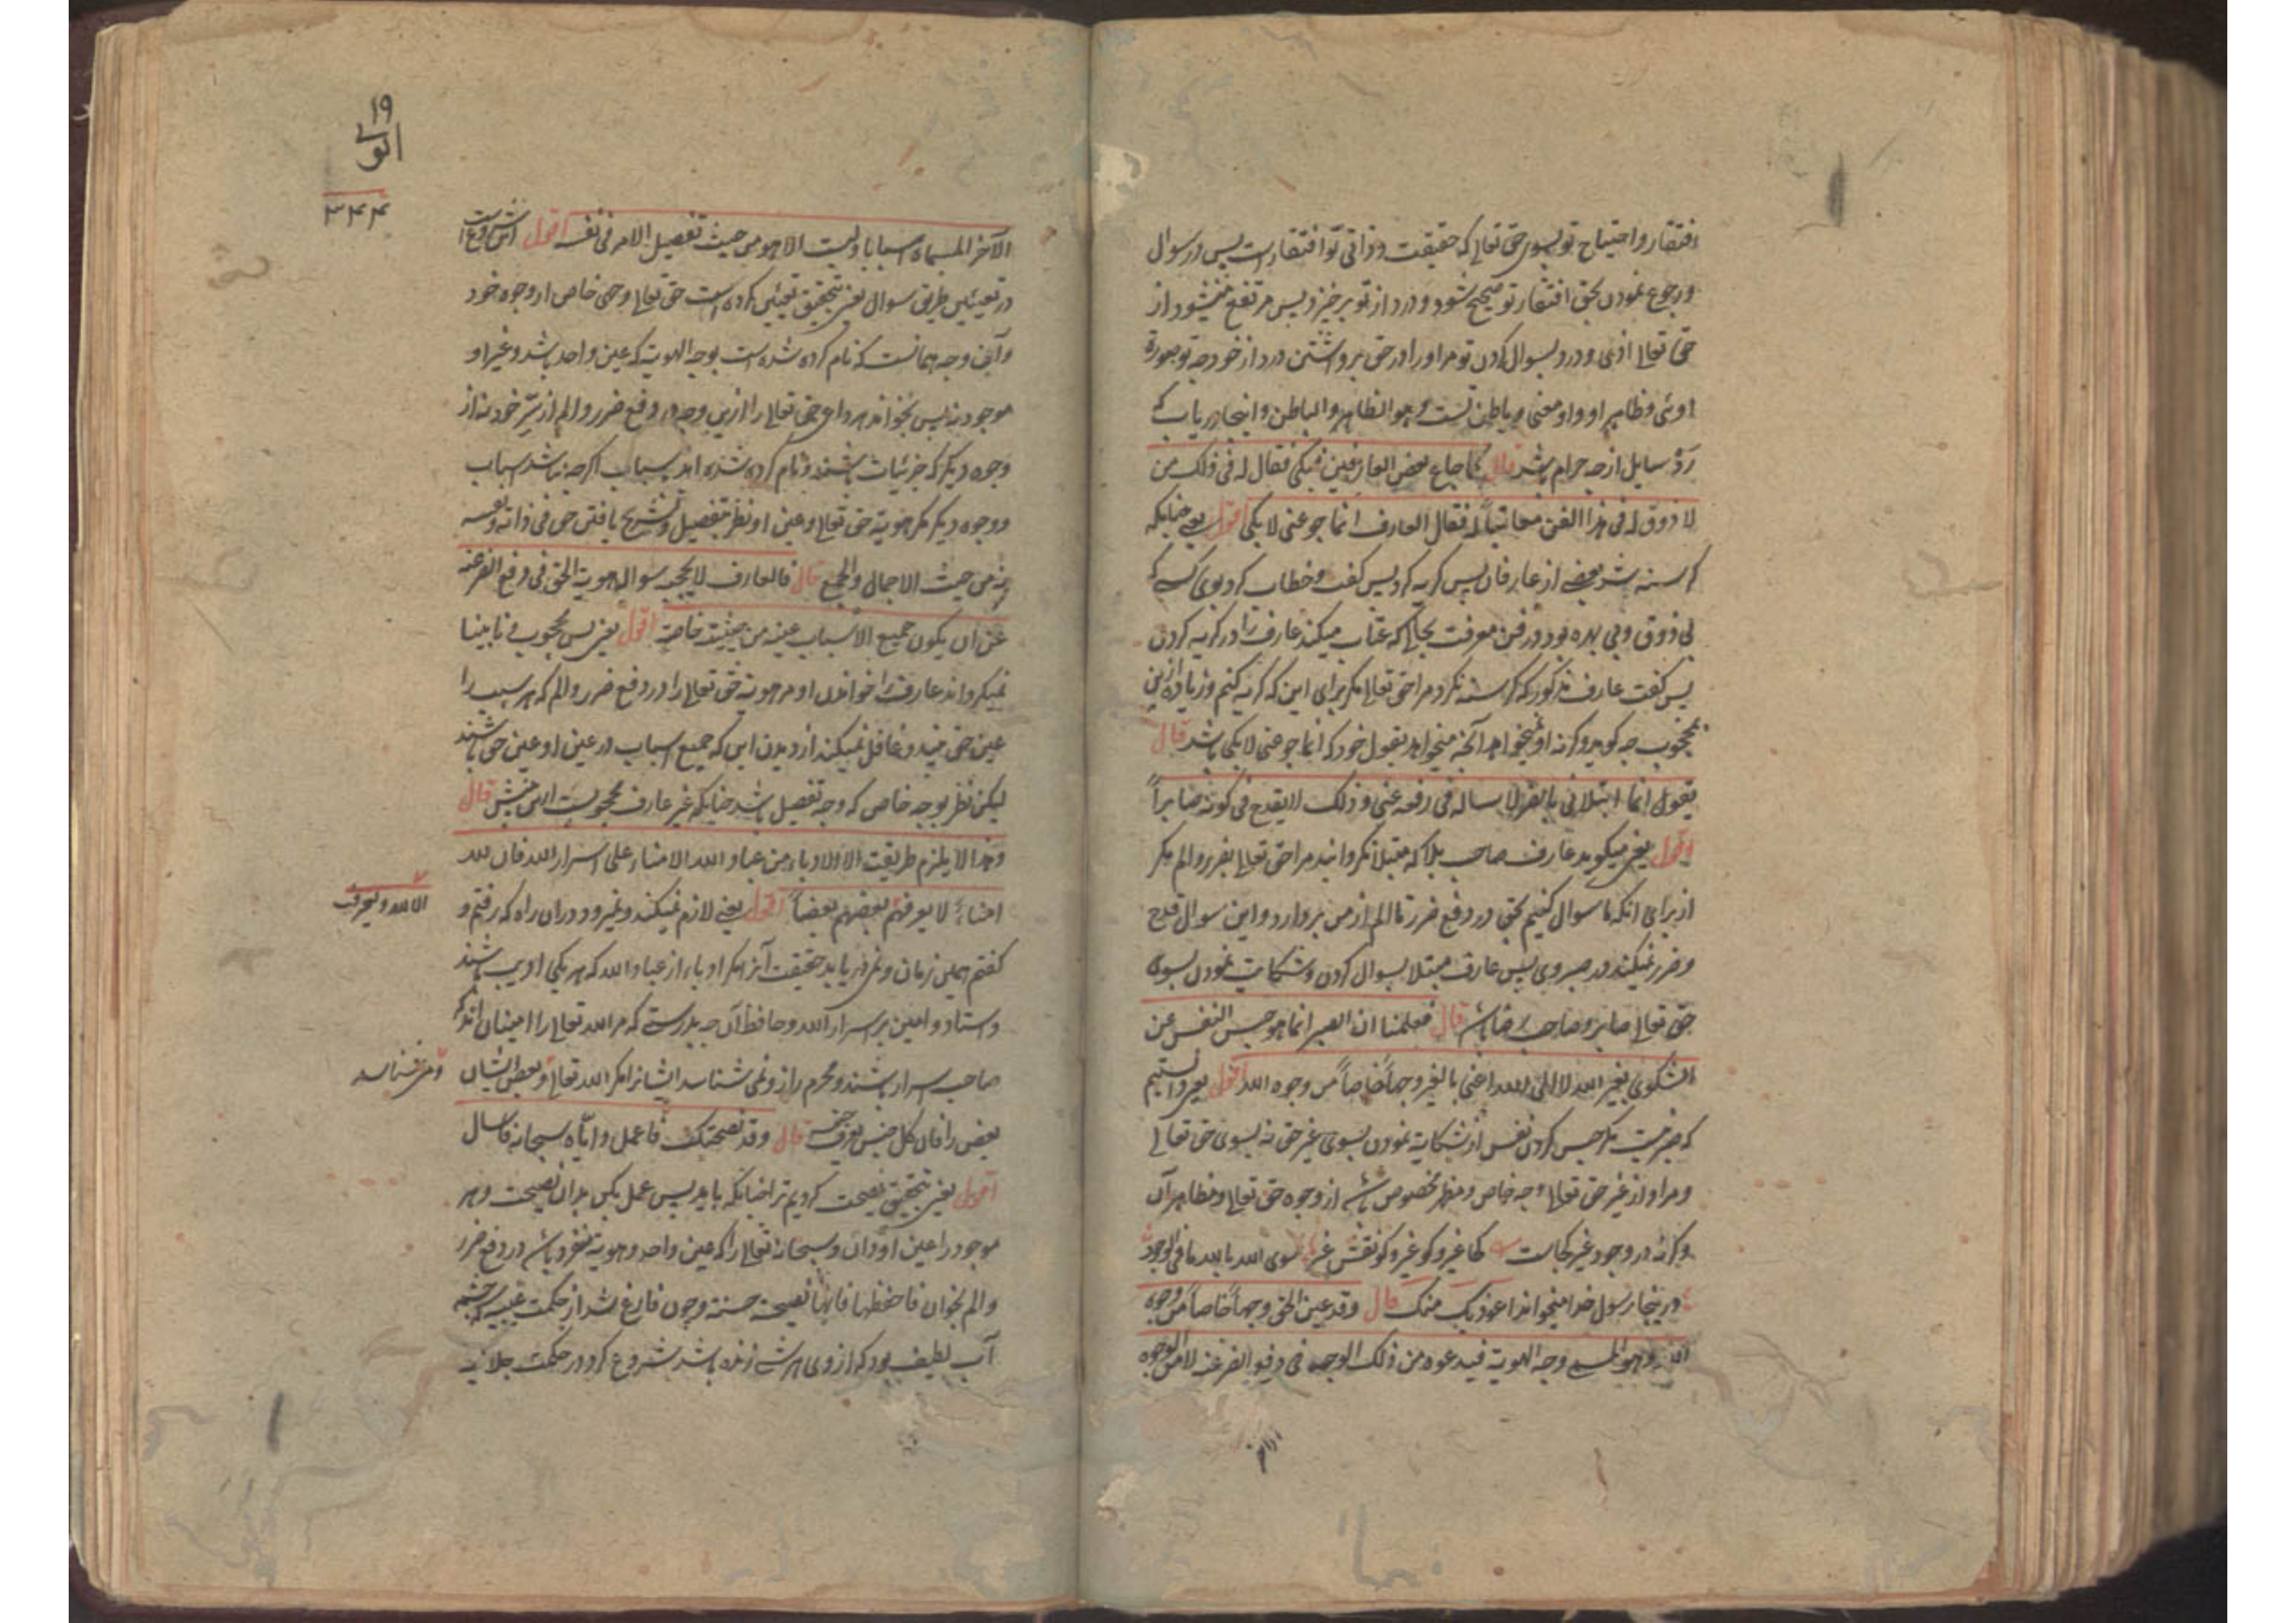 افتقار و احتیاج تو بسوی حق تعالی که حقیقت و ذاتی تو افتقار است پس در سوال
و رجوع نمودن بحق افتقار تو صحیح شود و درد از تو برخیزد پس مرتفع میشود از
حق تعالی اذی و درد بسوال کردن تو مر او را در حق برداشتن درد از خود چه تو صورة
اوئی و ظاهر او و او معنی و باطن تست و هو الظاهر و الباطن و اینجا دریاب که
رد سایل از چه حرام باشد قال کما جاع بعض العارفین فبکی فقال له فی ذلک من
لا ذوق له فی هذا الفن معاتباً له فقال العارف انما جوعنی لابکی اقول یعنی چنانکه
گرسنه شد بعضی از عارفان پس گریه کرد پس گفت و خطاب کرد بوی کسی که
بی ذوق و بی بهره بود در فن معرفت بحالی که عتاب میکند عارف را در گریه کردن
پس گفت عارف مذکور که گرسنه نکرد مرا حق تعالی مگر برای این که گریه کنم و زیاده ازین
محجوب چه گوید و گرنه او میخواهد آنچه میخواهد بقول خود که انما جوعنی لابکی باشد قال
یقول انما ابتلانی بالضر لاساله فی رفعه عنی و ذلک لا یقدح فی کونه صابراً
اقول یعنی میگوید عارف صاحب بلا که مبتلا نگردانید مرا حق تعالی بضرر و الم مگر
از برای آنکه تا سوال کنیم بحق در دفع ضرر تا الم از من بردارد و این سوال قدح
و ضرر نمیکند در صبر وی پس عارف مبتلا بسوال کردن و شکایت نمودن بسوی
حق تعالی صابر و صاحب رضا باشد قال فعلمنا ان الصبر انما هو حبس النفس عن
الشکوی بغیر الله لا الی الله و اعنی بالغیر وجهاً خاصاً من وجوه الله اقول یعنی دانستیم
که صبر نیست مگر حبس کردن نفس از شکایة نمودن بسوی غیر حق نه بسوی حق تعالی
و مراد از غیر حق تعالی وجه خاص و مظهر مخصوص باشد از وجوه حق تعالی و مظاهر آن
و گرنه در وجود غیر کجاست کجا غیر و کو غیر و کو نقش غیر سوی الله بالله ما فی الوجود
و درینجا رسول خدا میخواند اعوذ بک منک قال و قد عین الحق وجهاً خاصاً من وجوه
الله و هو المسمی وجه الهویة فیدعوه من ذلک الوجه فی رفع الضر عنه لا من الوجوه
۱۹
۳۴۴
الآخر المسماة اسبابا و لیست الا هو من حیث تفصیل الامر فی نفسه اقول
در تعیین طریق سوال یعنی بتحقیق تعیین کرده است حق تعالی وجهی خاص از وجوه خود
و آن وجه همانست که نام کرده شده است بوجه الهویت که عین واحد باشد و غیر او
موجود نه پس بخواند هر داعی حق تعالی را ازین وجه در دفع ضرر و الم از سر خود نه از
وجوه دیگر که جزئیات باشند و نام کرده شده اند باسباب اگرچه نباشد اسباب
و وجوه دیگر مگر هویة حق تعالی و عین او نظر بتفصیل و تشریح یافتن حق فی ذاته و نفسه
نه من حیث الاجمال و الجمع قال فالعارف لا یحجبه سواله هویة الحق فی رفع الضر عنه
عن ان یکون جمیع الاسباب عینه من حیثیة خاصة اقول یعنی پس محجوب و نابینا
نمیگرداند عارف را خواندن او مر هویة حق تعالی را در دفع ضرر و الم که هر سبب را
عین حق بیند و غافل نمیکند از دیدن این که جمیع اسباب در عین او عین حق باشند
لیکن نظر بوجه خاص که وجه تفصیل باشد چنانکه غیر عارف محجوبست ازین بینش قال
و هذا لا یلزم طریقت الا الادباء من عباد الله الامناء علی اسرار الله فان لله
امناء لا یعرفهم بعضهم بعضاً اقول یعنی لازم نمیکند و نمیرود در آن راه که رفتیم و
الا الله و یعرف
گفتم همین زمان و نمی دریابد حقیقت آنرا مگر ادباء از عباد الله که هر یکی ادیب باشند
و استاد و امین بر اسرار الله و حافظ آن چه بدرستی که مر الله تعالی را امینان اند که
صاحب اسرار باشند و محرم راز و نمی شناسد ایشانرا مگر الله تعالی و بعض ایشان
و می شناسد
بعض را فان کل جنس یعرف جنسه قال و قد نصحتک فاعمل و ایاه سبحانه فاسال
اقول یعنی بتحقیق نصیحت کردیم ترا چنانکه باید پس عمل بکن بدان نصیحت و هر
موجود را عین او دان و سبحانه تعالی را که عین واحد و هویة متفرد باشد در دفع ضرر
و الم بخوان فاحفظها فانها نصیحة حسنة و چون فارغ شد از حکمت غیبیه که چشمه
آب لطیف بود که از وی هر شی زنده باشد شروع کرد در حکمت جلالیه